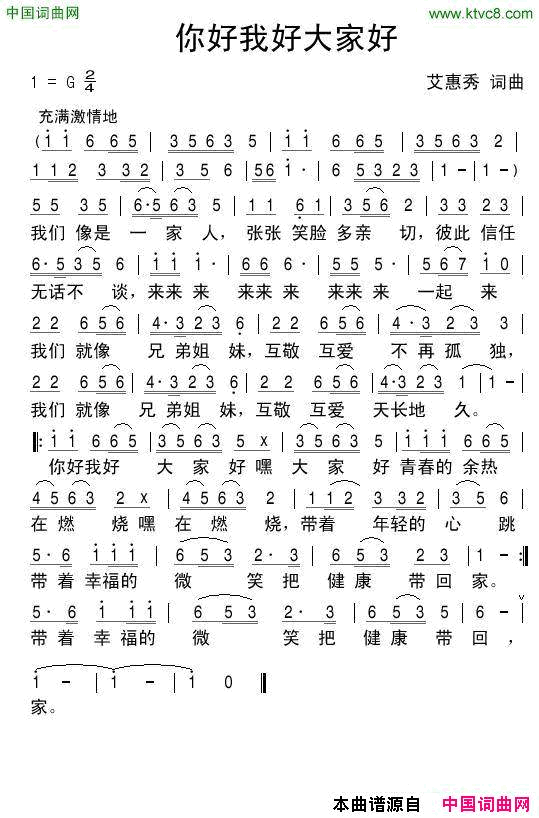 中国词曲网
www.ktvc8.com
你好我好大家好
1 = G 2/4
艾惠秀 词曲
充满激情地
(i i 6 6 5 | 3 5 6 3 5 | i i 6 6 5 | 3 5 6 3 2 |
1 1 2 3 3 2 | 3 5 6 | 5 6 i · | 6 5 3 2 3 | 1 - | 1 - )
5 5 3 5 | 6 · 5 6 3 5 | 3 2 1 1 6 1 | 3 5 6 2 | 3 3 2 3 |
我们 像是 一 家 人，张张 笑脸 多亲 切，彼此 信任
6 · 5 3 5 2 | i i i · | 6 6 6 · | 5 5 5 · | 5 6 7 i 0 |
无话不 谈，来来 来 来来 来 来来 来 一起 来
2 2 6 5 6 | 4 · 3 2 3 6 | 2 2 6 5 6 | 4 · 3 2 3 3 |
我们 就像 兄 弟姐 妹，互敬 互爱 不 再孤 独，
2 2 6 5 6 | 4 · 3 2 3 6 | 2 2 6 5 6 | 4 · 3 2 3 1 | 1 - |
我们 就像 兄 弟姐 妹，互敬 互爱 天长地 久。
‖: i i 6 6 5 | 3 5 6 3 5 x | 3 5 6 3 5 | i i i 6 6 5 |
你好我好 大 家 好嘿 大 家 好 青春的 余热
4 5 6 3 | 2 x | 4 5 6 3 2 | 1 1 2 | 3 5 6 3 5 |
在燃 烧嘿 在 燃 烧，带着 年轻的 心 跳
5 · 6 i i i | 6 5 3 | 2 · 3 | 6 5 3 5 | 2 2 3 | 1 - :‖
带 着 幸福的 微 笑把 健康 带回 家。
5 · 6 i i i | 6 5 3 | 2 · 3 | 6 6 5 3 | 5 - v
带 着 幸 福的 微 笑 把 健 康 带 回，
i - | i - | i 0 ‖
家。
本曲谱源自 中国词曲网